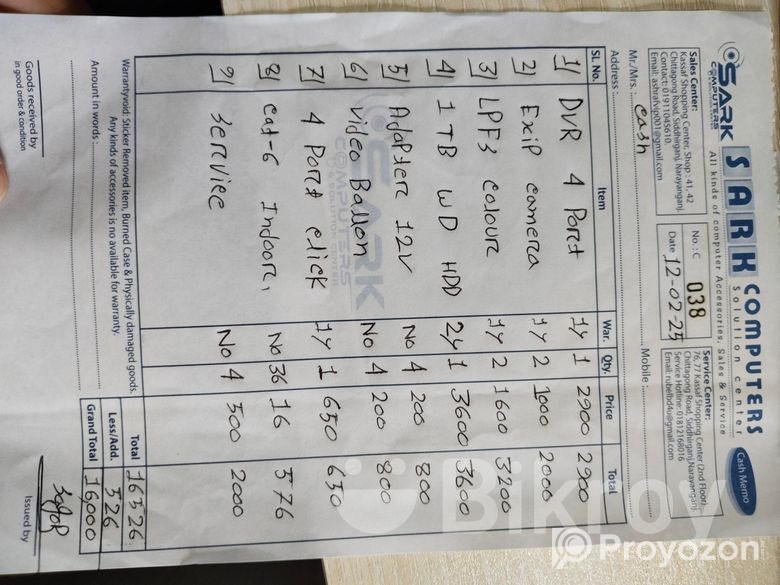 SARK
COMPUTERS
SARK COMPUTERS
Solution center
All kinds of computer Accessories, Sales & Service
Cash Memo
Sales Center:
Kassaf Shopping Center, Shop : 41, 42
Chittagong Road, Siddhirganj, Narayanganj.
Contact: 01911045610,
Email: ashrafvsp001@gmail.com
No. : C 038
Date 12-02-25
Service Center:
76, 77 Kassaf Shopping Center (2nd Floor),
Chittagong Road, Siddhirganj, Narayanganj.
Service Hotline: 01812168016
Email: rubelbd4u@gmail.com
Mr./Mrs. : cash
Mobile :
Address :
SL. No. Item War. Qty. Price Total
1) DVR 4 Port 1y 1 2900 2900
2) Exip camera 1y 2 1000 2000
3) LPF3 colour 1y 2 1600 3200
4) 1 TB WD HDD 2y 1 3600 3600
5) Adapter 12V No 4 200 800
6) Video Ballon No 4 200 800
7) 4 Port click 1y 1 650 650
8) Cat-6 Indoor, No 36 16 576
9) Service No 4 500 2000
SARK
COMPUTERS
& SOLUTION CENTER
Warranty void: Sticker Removed item, Burned Case & Physically damaged goods.
Any kinds of accessories is no available for warranty.
Total 16526
Less/Add. 526
Grand Total 16000
Amount in words :
Goods received by
in good order & condition
Issued by
Bikroy
Proyozon